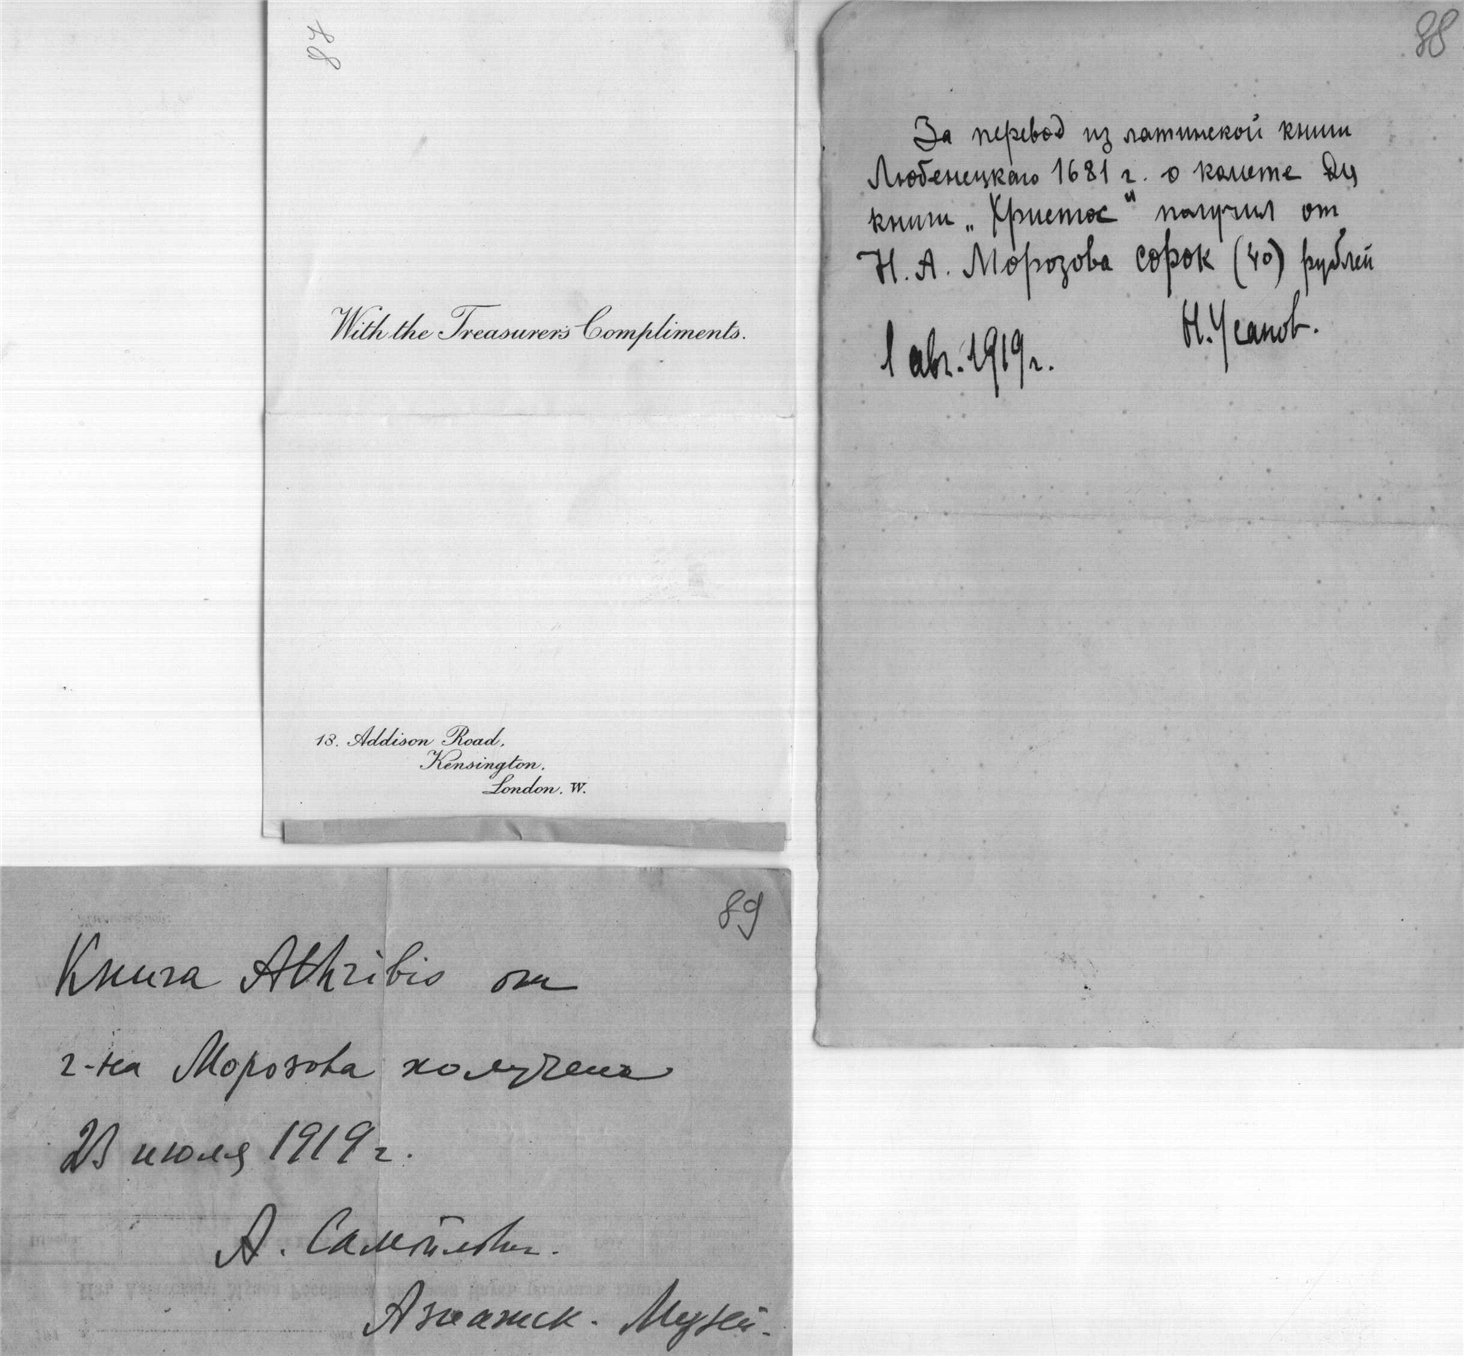 87
With the Treasurer's Compliments.
18. Addison Road,
Kensington,
London. W.
88
За перевод из латинской книги
Любенецкаго 1681 г. о комете для
книги „Христос" получил от
Н. А. Морозова сорок (40) рублей
Н. Усанов.
1 авг. 1919 г.
89
Книга Athribis от
г-на Морозова получена
23 июля 1919 г.
А. Самойлович.
Азиатск. Музей.